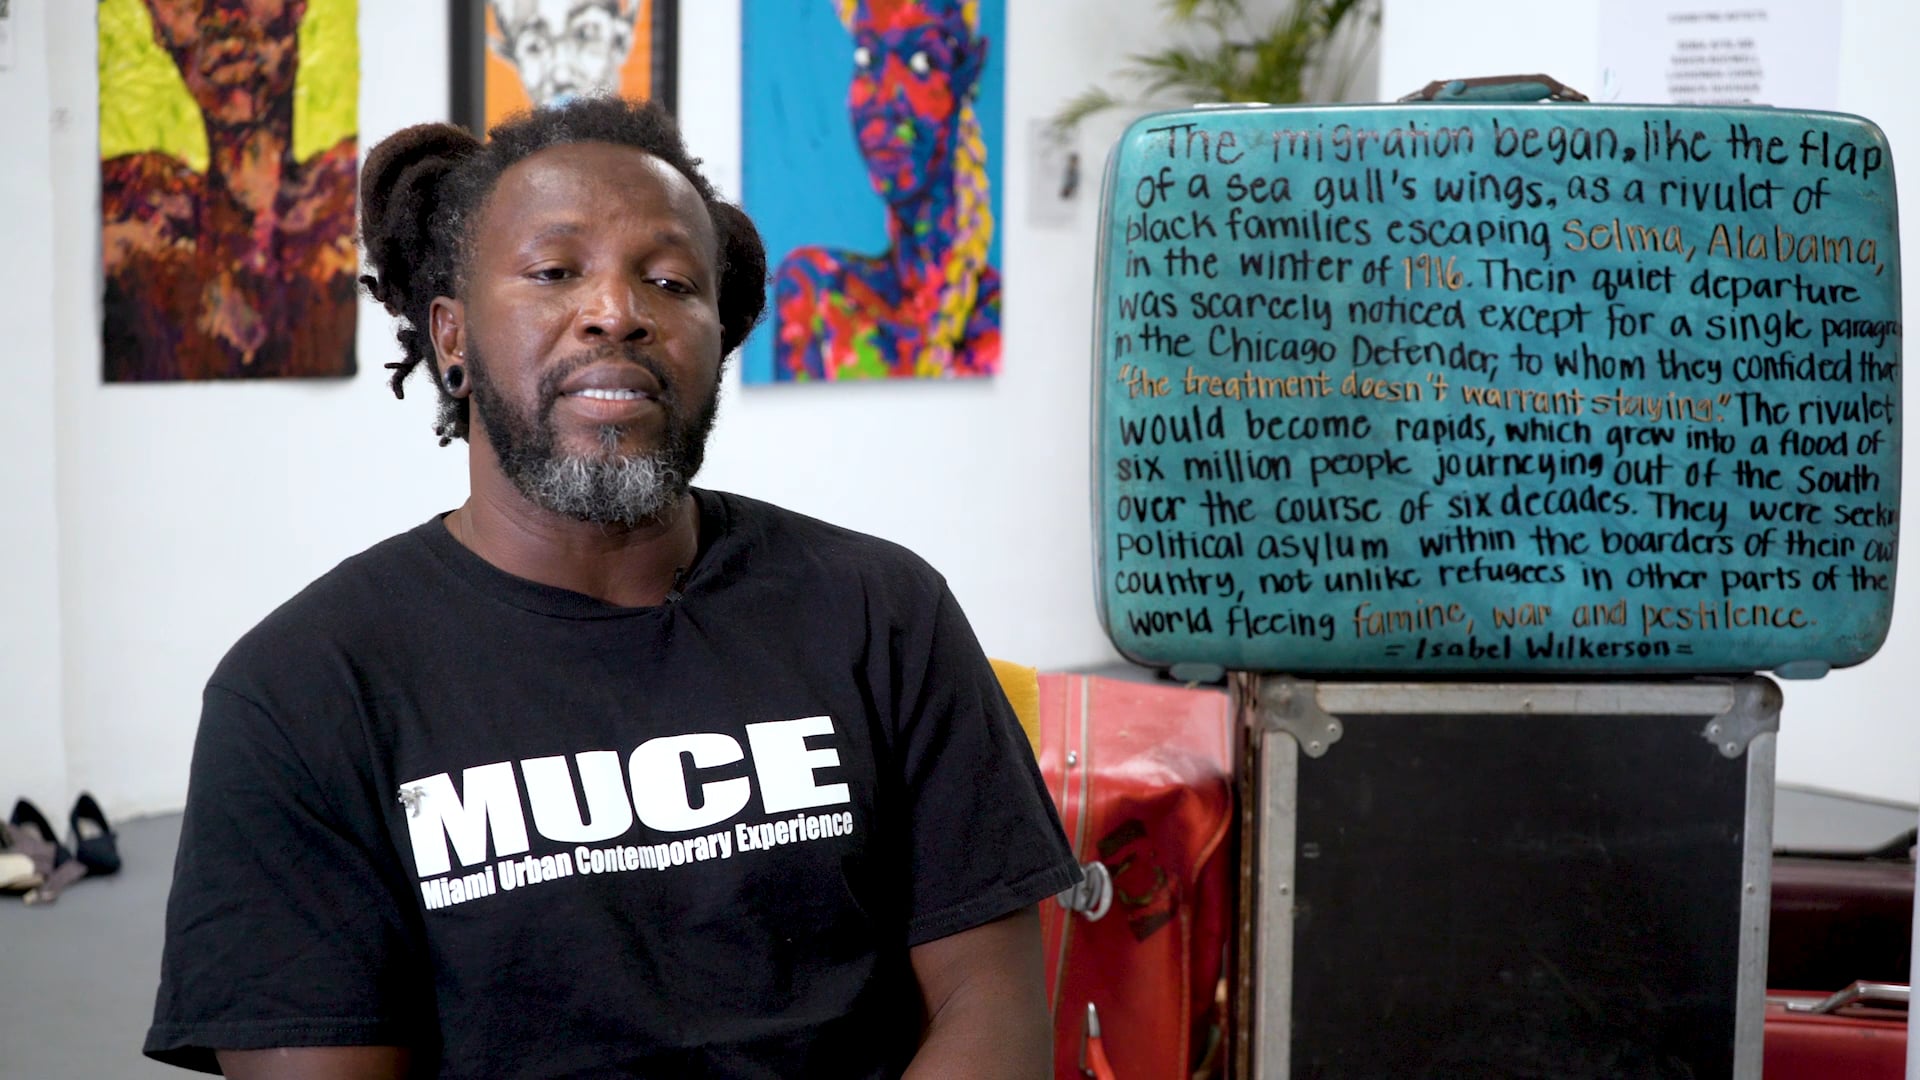 MUCE
Miami Urban Contemporary Experience
The migration began, like the flap
of a sea gull's wings, as a rivulet of
black families escaping Selma, Alabama,
in the winter of 1916. Their quiet departure
was scarcely noticed except for a single paragra
in the Chicago Defender, to whom they confided that
"the treatment doesn't warrant staying." The rivulet
would become rapids, which grew into a flood of
six million people journeying out of the South
over the course of six decades. They were seeki
political asylum within the boarders of their ow
country, not unlike refugees in other parts of the
world fleeing famine, war and pestilence.
= Isabel Wilkerson =